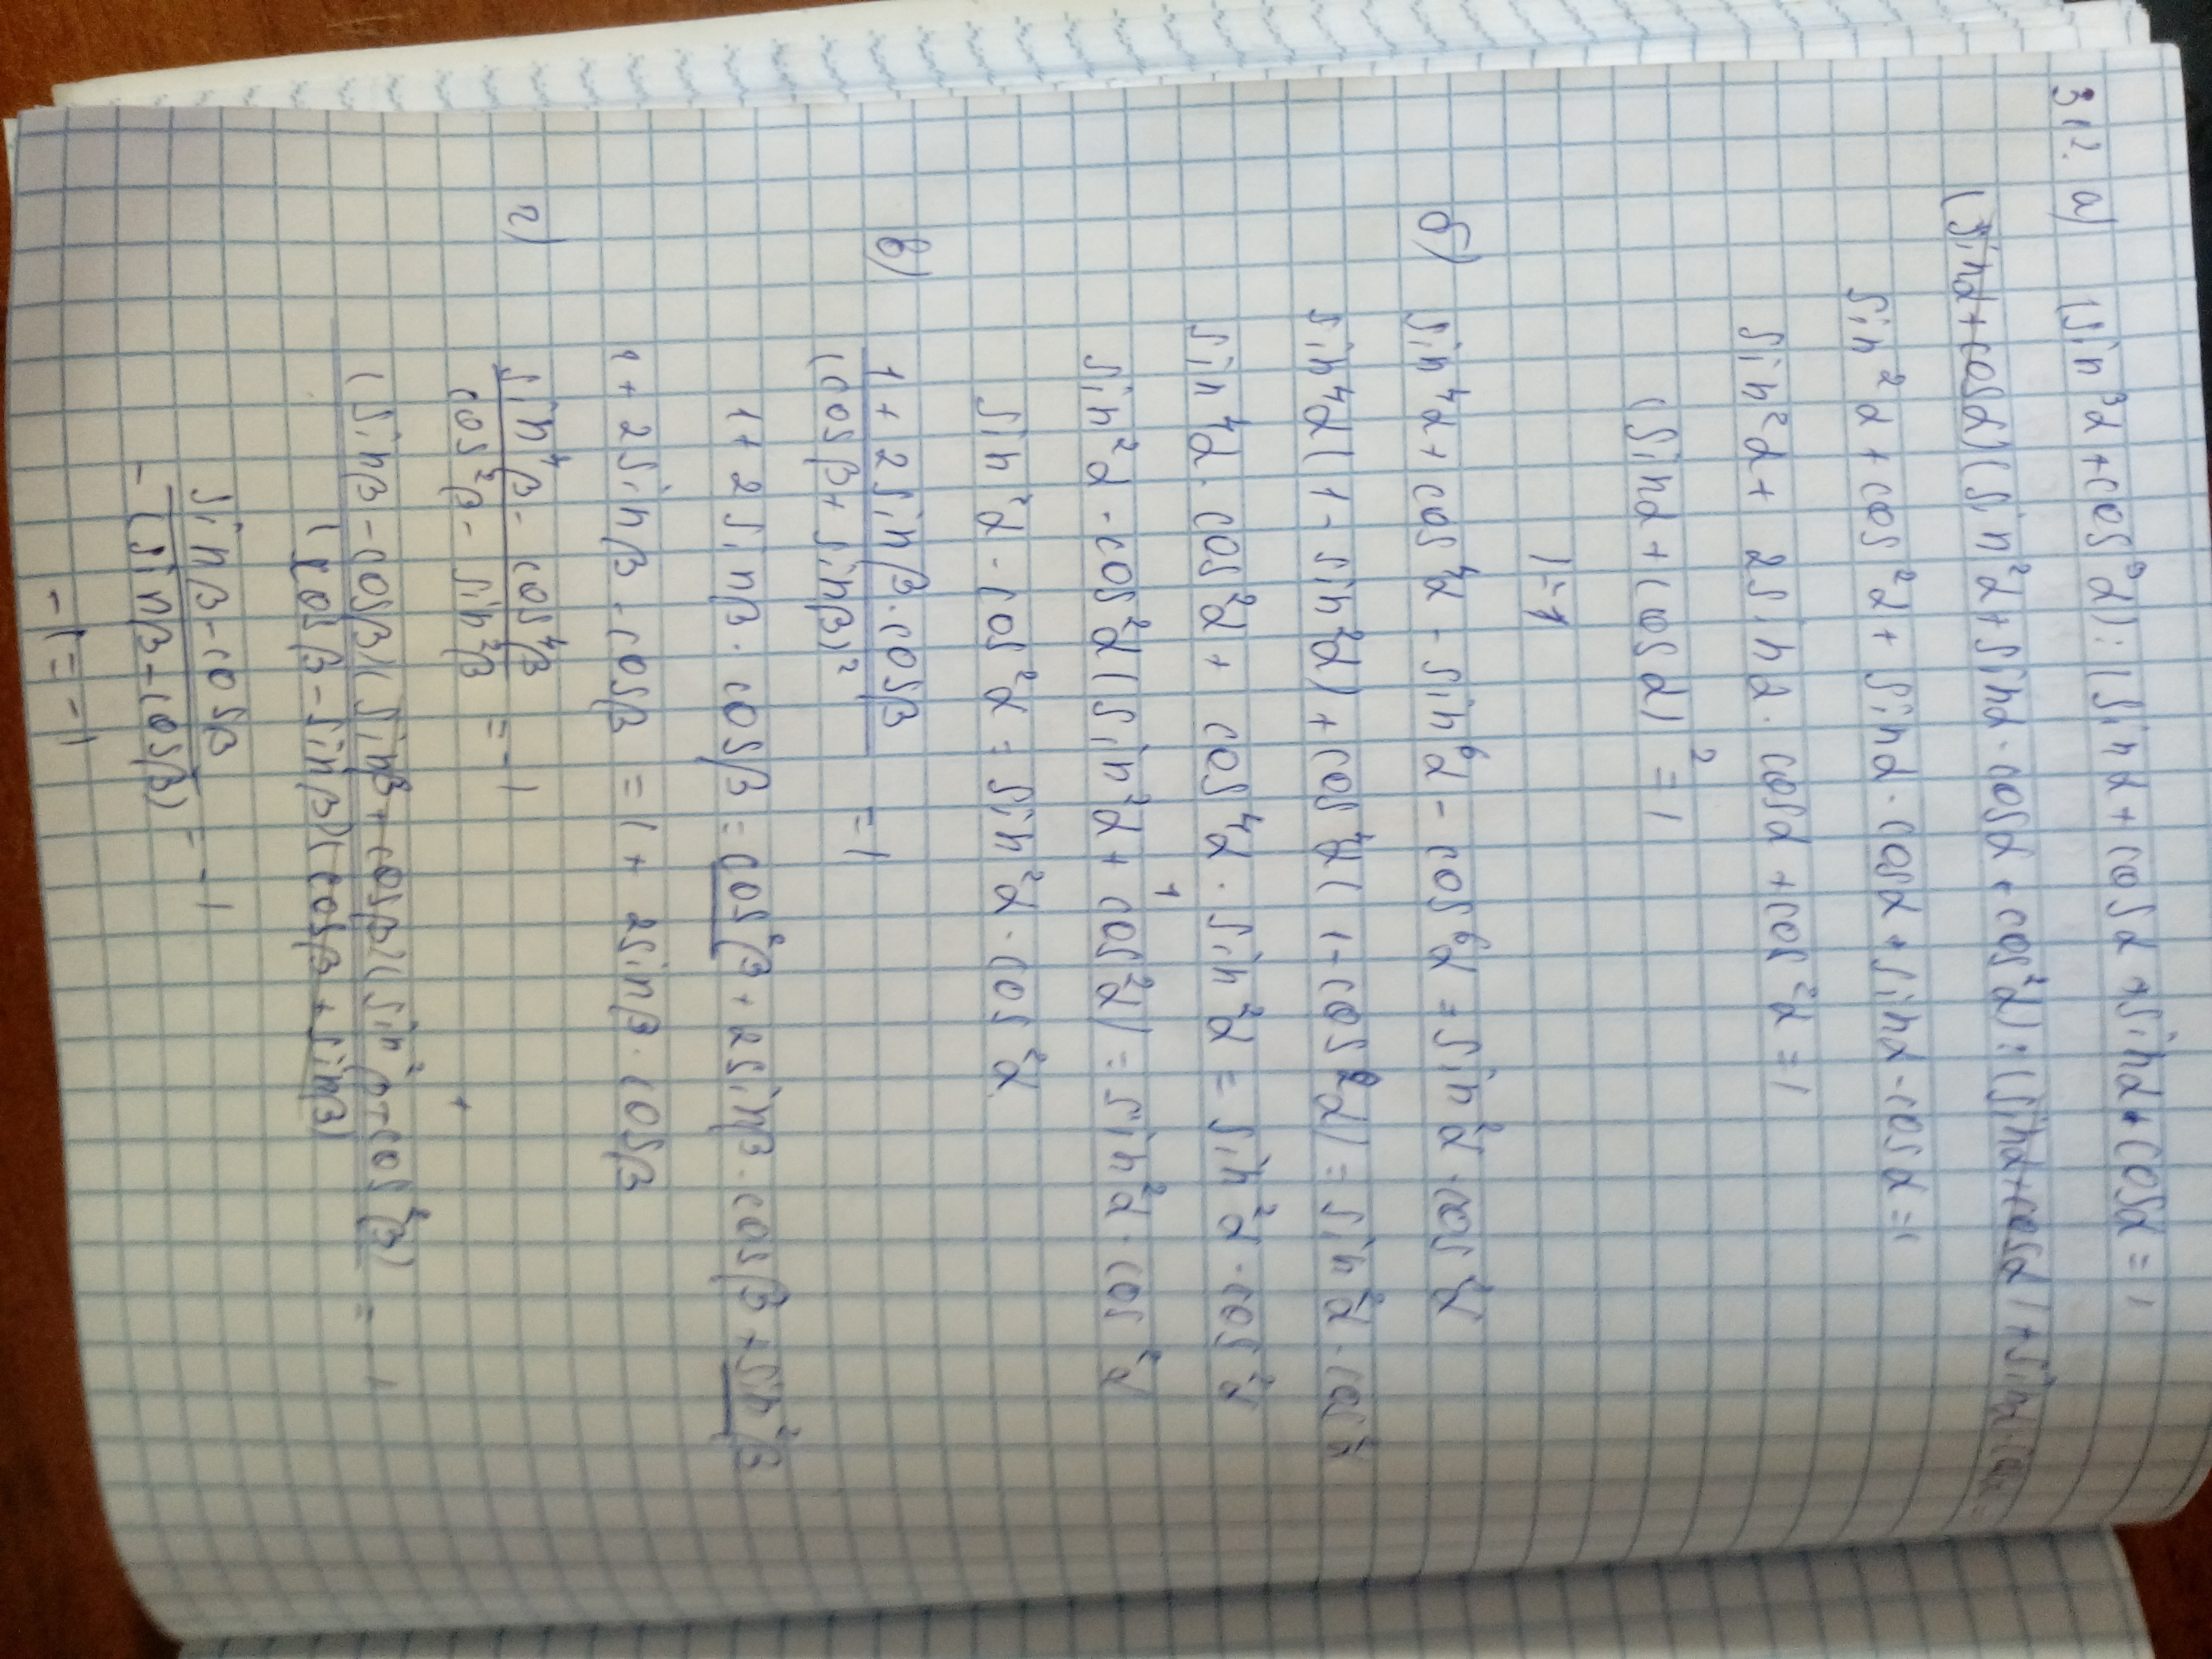 312. а) (sin³α + cos³α) : (sinα + cosα + sinα • cosα = 1
(sinα + cosα)(sin²α + sinα · cosα + cos²α) : (sinα + cosα) + sinα · cosα
sin²α + cos²α + sinα · cosα + sinα · cosα = 1
sin²α + 2sinα · cosα + cos²α = 1
(sinα + cosα)² = 1
1 = 1
б) sin⁴α + cos⁴α - sin⁶α - cos⁶α = sin²α · cos²α
sin⁴α(1 - sin²α) + cos⁴α(1 - cos²α) = sin²α · cos²α
sin⁴α · cos²α + cos⁴α · sin²α = sin²α · cos²α
1
sin²α · cos²α(sin²α + cos²α) = sin²α · cos²α
sin²α · cos²α = sin²α · cos²α
в) 1 + 2sinβ · cosβ
(cosβ + sinβ)² = 1
1 + 2sinβ · cosβ = cos²β + 2sinβ · cosβ + sin²β
1 + 2sinβ · cosβ = 1 + 2sinβ · cosβ
г) sin⁴β - cos⁴β
cos²β - sin²β = -1
1
(sinβ - cosβ)(sinβ + cosβ)(sin²β + cos²β)
(cosβ - sinβ)(cosβ + sinβ) = -1
sinβ - cosβ
-(sinβ - cosβ) = -1
-1 = -1